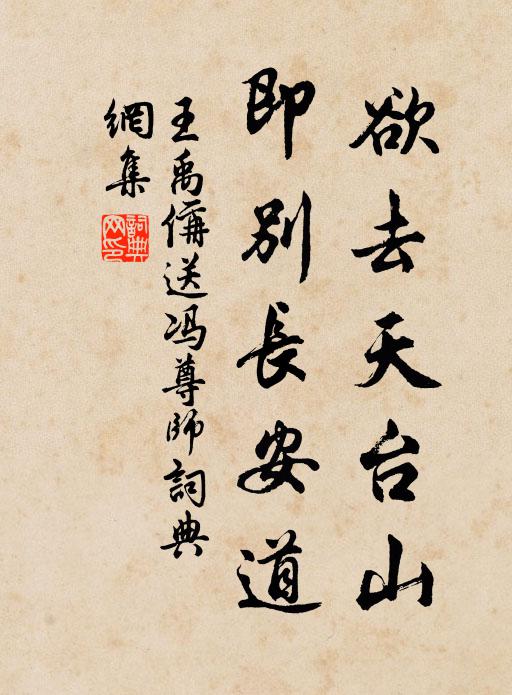 欲去天台山
即別長安道
王禹偁送冯尊師詞典
網集
詞典網印